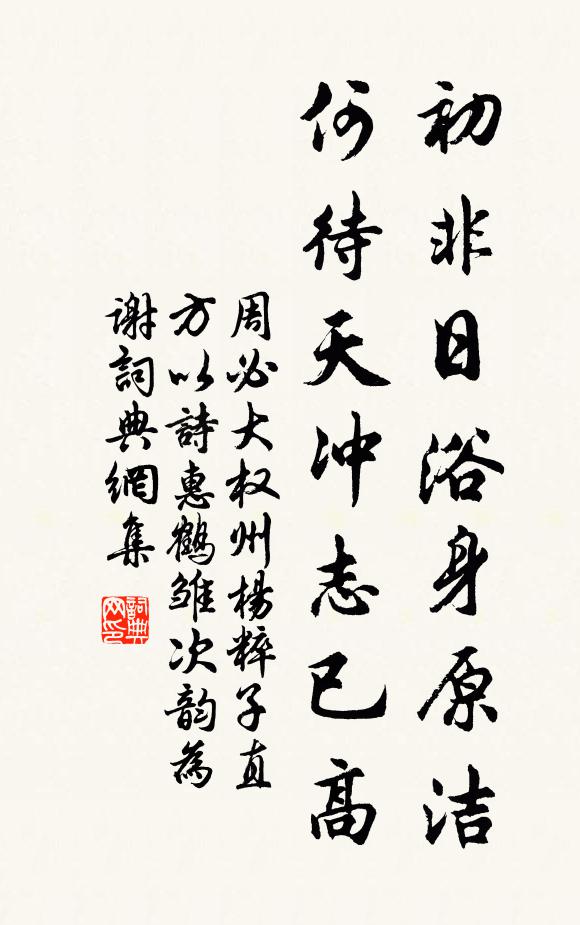 初非日浴身原洁
何待天冲志已高
周必大权州楊粹子直
方以詩惠鶴雏次韵為
谢詞典網集
詞典网印